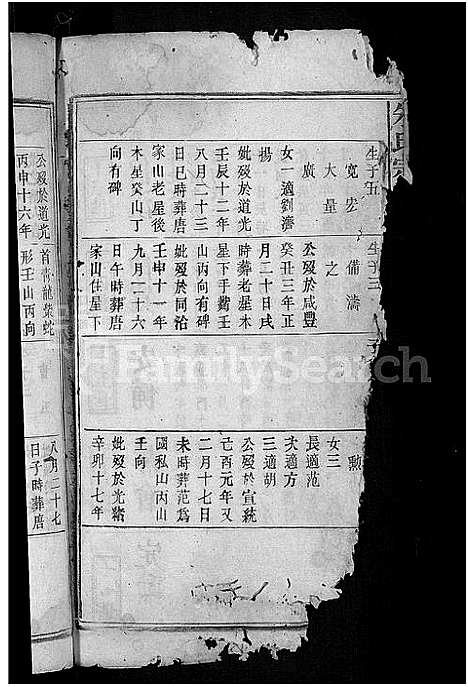 朱氏宗
生子五
寬宏
大量
廣
女一適劉濟
揚
妣歿於道光
壬辰十二年
八月二十三
日巳時葬唐
家山老屋後
木星癸山丁
向有碑
生子三
備濤
之
公歿於咸豐
癸丑三年正
月二十日戌
時葬老屋木
星下手黃壬
山丙向有碑
妣歿於同治
壬申十一年
九月二十六
日午時葬唐
家山住屋下
勲
女三
長適范
次適方
三適胡
公歿於宣統
己酉元年又
二月十七日
未時葬范為
國私山丙山
壬向
妣歿於光緒
辛卯十七年
公歿於道光
丙申十六年
首青龍柴蛇
形壬山丙向
八月二十七
日子時葬唐
FamilySearch